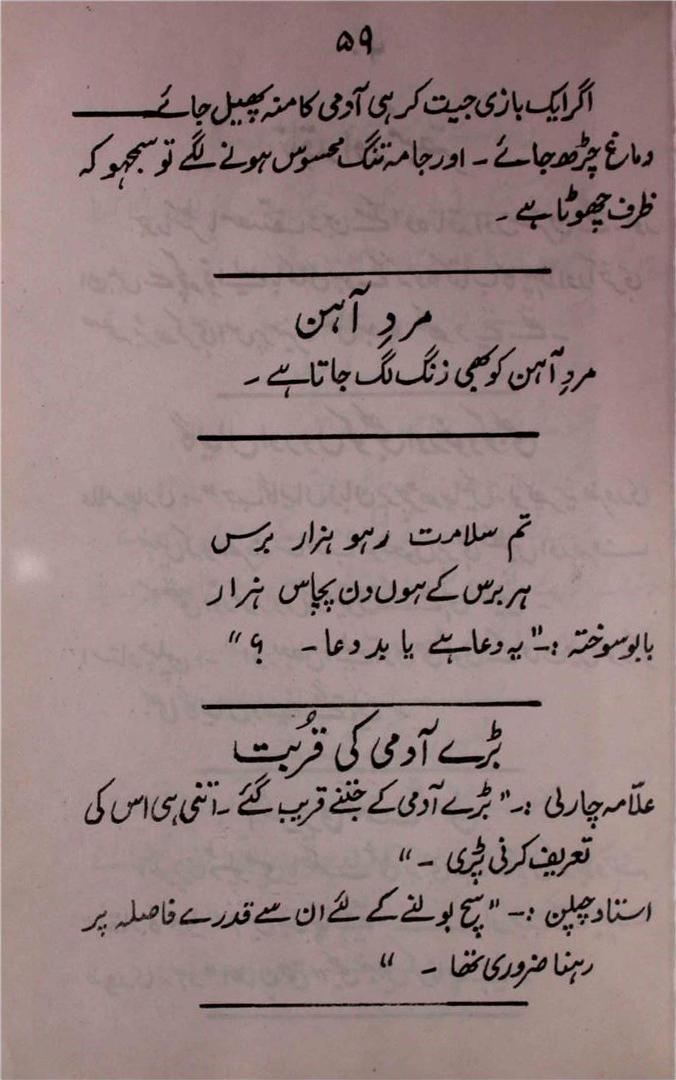 ۵۹
اگر ایک بازی جیت کر ہی آدمی کا منہ پھیل جائے ـــــــ
دماغ چڑھ جائے ۔ اور جامہ تنگ محسوس ہونے لگے تو سمجھو کہ
ظرف چھوٹا ہے ۔
مردِ آہن
مردِ آہن کو بھی زنگ لگ جاتا ہے ۔
تم سلامت رہو ہزار برس
ہر برس کے ہوں دن پچاس ہزار
بابو سوختہ :۔ " یہ دعا ہے یا بد دعا ۔ ؟ "
بڑے آدمی کی قُربت
علّامہ چارلی :۔ " بڑے آدمی کے جتنے قریب گئے ۔ اتنی ہی اس کی
تعریف کرنی پڑی ۔ "
استاد چپلن :۔ " سچ بولنے کے لئے ان سے قدرے فاصلہ پر
رہنا ضروری تھا ۔ "